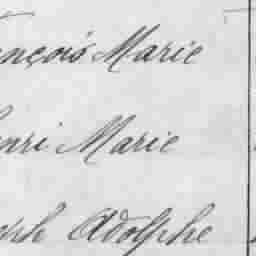 ançois Marie
enri Marie
eph Adolphe